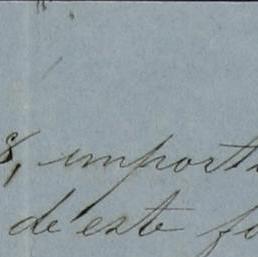 8, import
de este fo